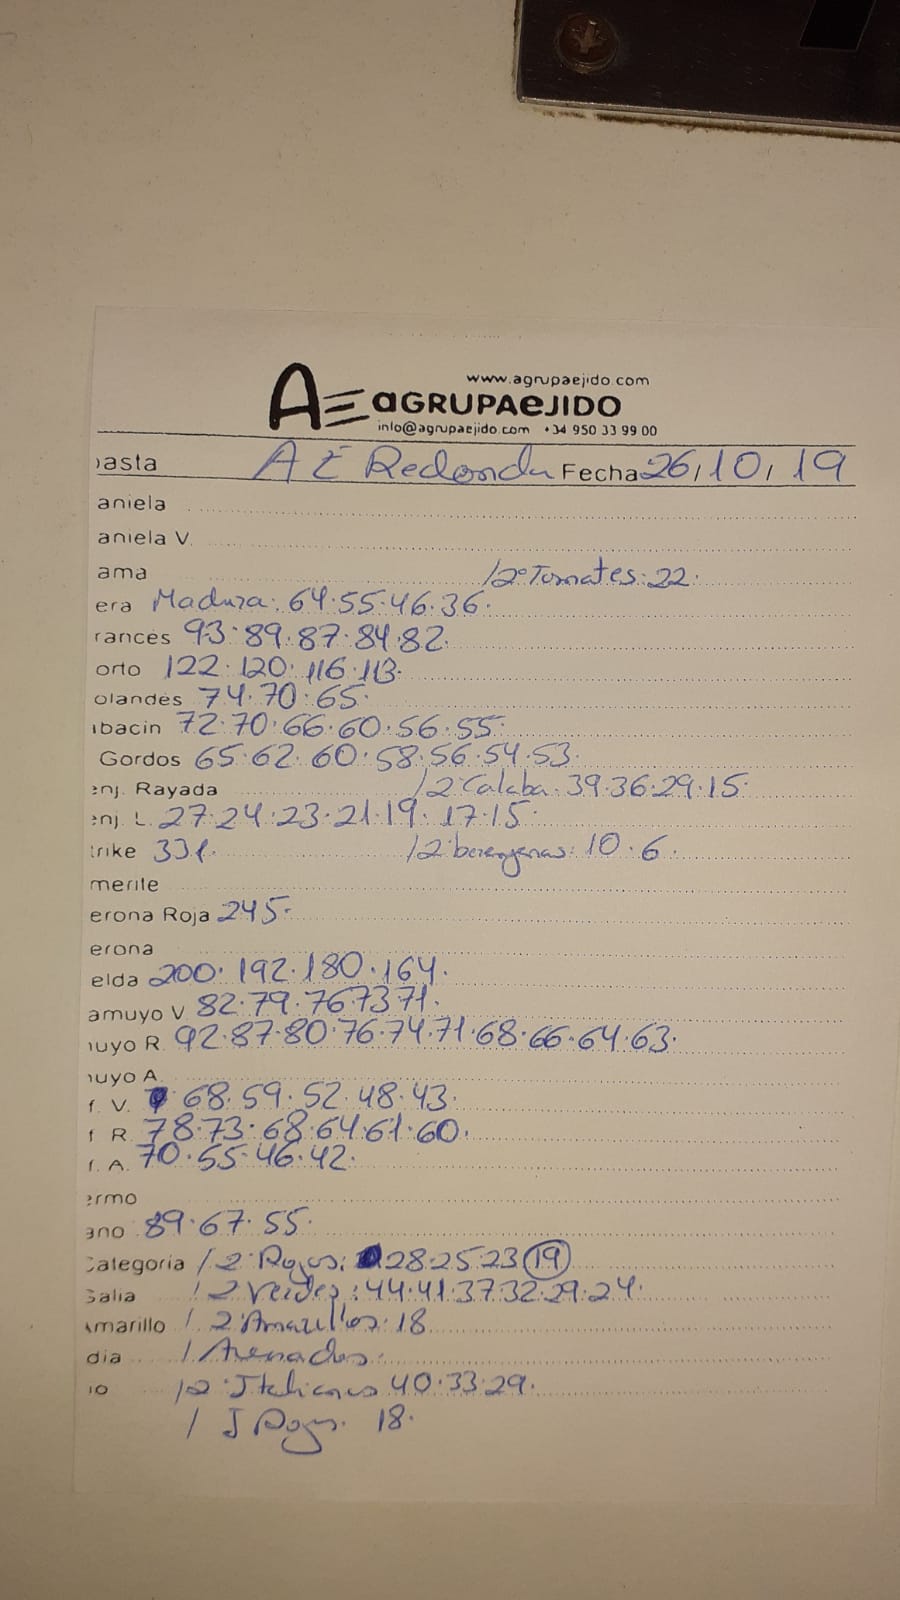 www.agrupaejido.com
AE aGRUPAeJIDO
info@agrupaejido.com +34 950 33 99 00
basta A E Redonda Fecha 26, 10, 19
aniela
aniela V.
ama / 2º Tomates: 22.
era Madura: 64.55.46.36.
rancés 93.89.87.84.82.
orto 122.120.116.113.
olandés 74.70.65.
abacin 72.70.66.60.56.55.
Gordos 65.62.60.58.56.54.53.
enj. Rayada / 2 Calaba. 39.36.29.15.
enj. L. 27.24.23.21.19.17.15.
trike 331.
/ 2 berenjenas: 10.6.
merite
erona Roja 245.
erona
elda 200.192.180.164.
amuyo V 82.79.76.73.71.
uyo R. 92.87.80.76.74.71.68.66.64.63.
uyo A.
f. V. 68.59.52.48.43.
f R. 78.73.68.64.61.60.
f. A. 70.55.46.42.
ermo
ano 89.67.55.
Categoria / 2 Rojos: 28.25.23 19
Galia / 2 Verdes: 44.41.37.32.29.24.
Amarillo / 2 Amarillos: 18
dia / Asenados:
io / 2 Italianos 40.33.29.
/ I Rojos. 18.